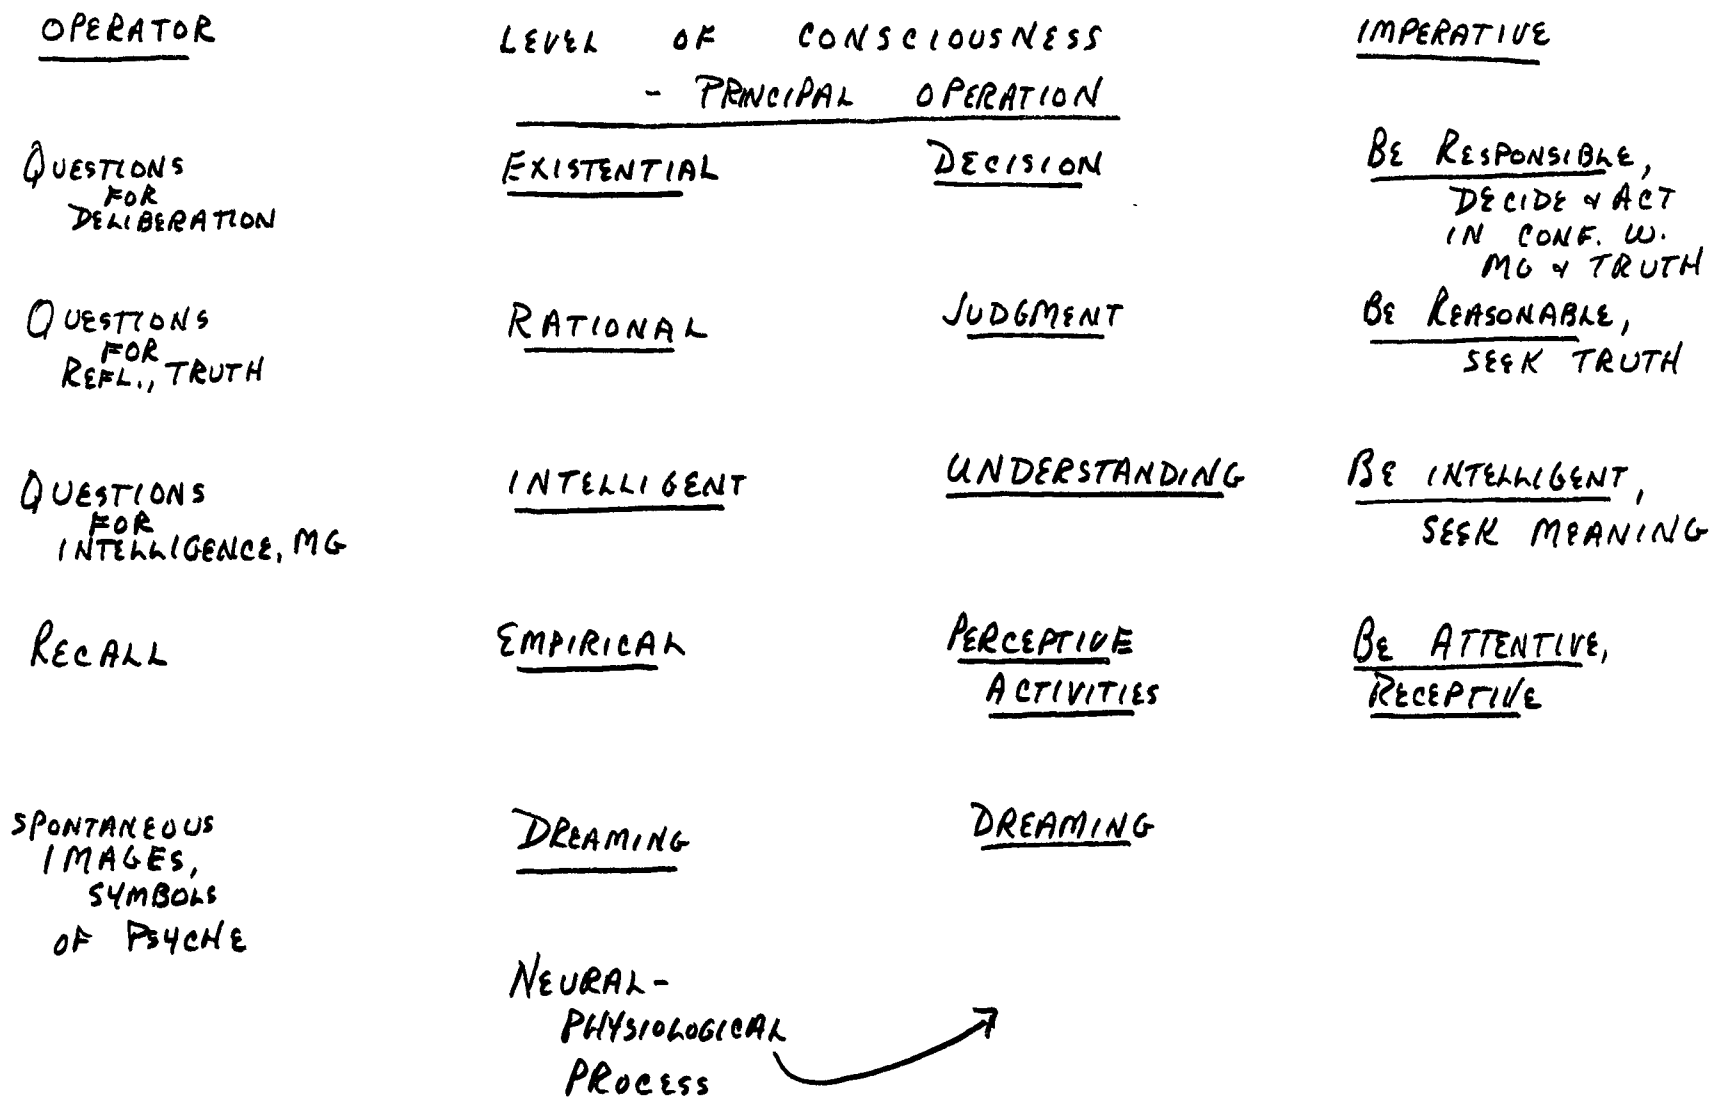 OPERATOR LEVEL OF CONSCIOUSNESS IMPERATIVE
- PRINCIPAL OPERATION
QUESTIONS FOR DELIBERATION EXISTENTIAL DECISION BE RESPONSIBLE,
DECIDE & ACT
IN CONF. W.
MG & TRUTH
QUESTIONS
FOR
REFL., TRUTH
RATIONAL
JUDGMENT
BE REASONABLE,
SEEK TRUTH
QUESTIONS
FOR
INTELLIGENCE, MG
INTELLIGENT
UNDERSTANDING
BE INTELLIGENT,
SEEK MEANING
RECALL
EMPIRICAL
PERCEPTIVE
ACTIVITIES
BE ATTENTIVE,
RECEPTIVE
SPONTANEOUS
IMAGES,
SYMBOLS
OF PSYCHE
DREAMING
DREAMING
NEURAL-
PHYSIOLOGICAL
PROCESS